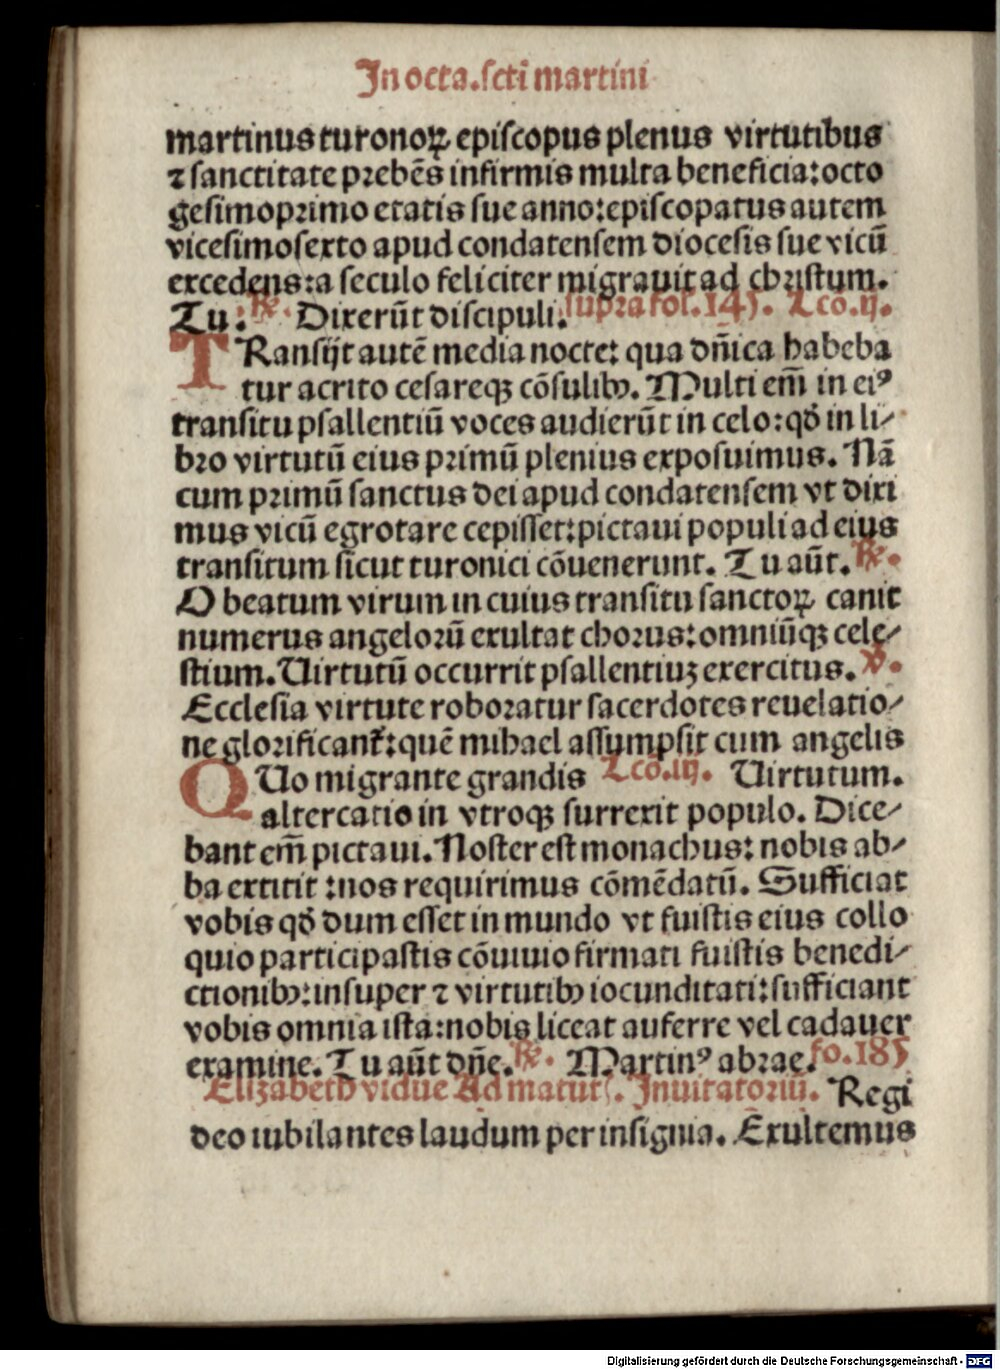 In octa. scti martini
martinus turonoꝝ episcopus plenus virtutibus
⁊ sanctitate prebēs infirmis multa beneficia: octo
gesimoprimo etatis sue anno: episcopatus autem
vicesimosexto apud condatensem diocesis sue vicū
excedens: a seculo feliciter migrauit ad christum.
Tu. ℞. Dixerūt discipuli. supra fol. 145. Lco. ij.
TRansijt autē media nocte: qua dn̄ica habeba
tur acrito cesareqꝫ cōsulibꝰ. Multi em̄ in eiꝰ
transitu psallentiū voces audierūt in celo: qđ in li⸗
bro virtutū eius primū plenius exposuimus. Nā
cum primū sanctus dei apud condatensem vt dixi
mus vicū egrotare cepisset: pictaui populi ad eius
transitum sicut turonici cōuenerunt. Tu aūt. ℞.
O beatum virum in cuius transitu sanctoꝝ canit
numerus angelorū exultat chorus: omniūqꝫ cele⸗
stium. Uirtutū occurrit psallentiuꝫ exercitus. ℣.
Ecclesia virtute roboratur sacerdotes reuelatio⸗
ne glorificant᷑: quē mihael assumpsit cum angelis
QUo migrante grandis Lcō. iij. Uirtutum.
altercatio in vtroqꝫ surrexit populo. Dice⸗
bant em̄ pictaui. Noster est monachus: nobis ab⸗
ba extitit: nos requirimus cōmēdatū. Sufficiat
vobis qđ dum esset in mundo vt fuistis eius collo
quio participastis cōuiuio firmati fuistis benedi⸗
ctionibꝰ: insuper ⁊ virtutibꝰ iocunditati: sufficiant
vobis omnia ista: nobis liceat auferre vel cadauer
examine. Tu aūt dn̄e. ℞. Martinꝰ abrae. fo. 185
Elizabeth vidue Ad matut. Inuitatoriū. Regi
deo iubilantes laudum per insignia. Exultemus
Digitalisierung gefördert durch die Deutsche Forschungsgemeinschaft - DFG